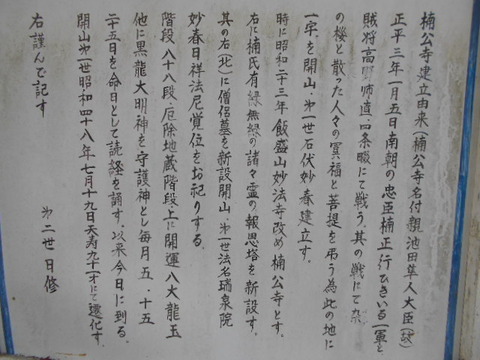 楠公寺建立由来(楠公寺名付親池田隼人大臣(故)
正平三年一月五日南朝の忠臣楠正行ひきいる一軍と
賊将高野師直、四条畷にて戦う、其の戦にて奈
の桜と散った人々の冥福と菩提を弔う為此の地に
一宇を開山、才一世石伏妙春建立す。
時に昭和二十三年飯盛山妙法寺改め楠公寺とす。
右に楠氏有縁無縁の諸々霊の報恩塔を新設す。
其の右(北)に僧侶墓を新設開山、才一世法名瑞泉院
妙春日祥法尼覚位をお祀りする。
階段、八十八段、厄除地蔵階段上に開運八大龍王
他に黒龍大明神を守護神とし毎月五、十五
二十五日を命日として読経を誦す。以来今日に到る。
開山才一世昭和四十八年七月十九日天寿九十一才にて遷化す。
右謹んで記す
才二世日修